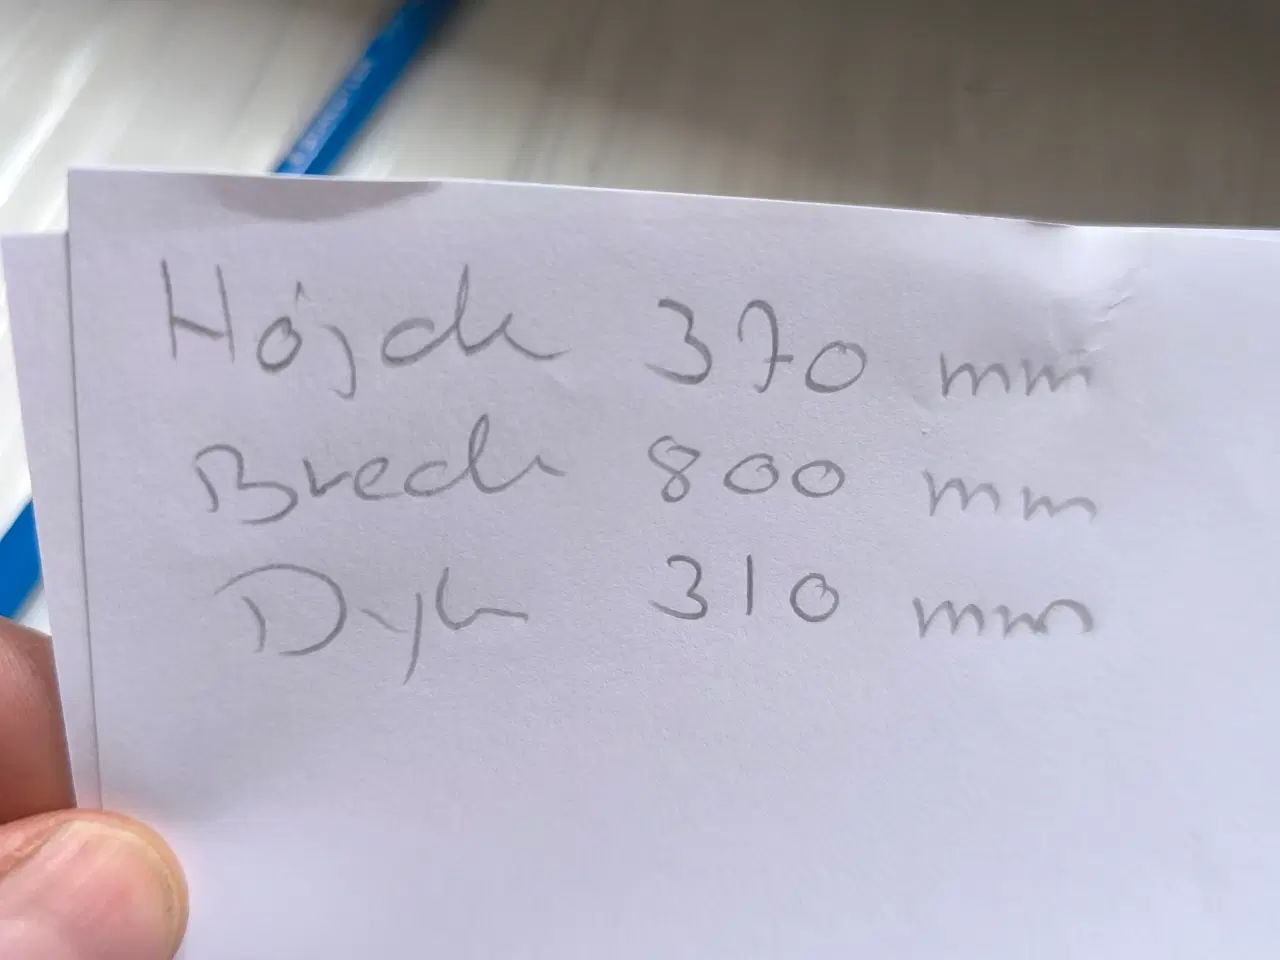 Højde 370 mm
Brede 800 mm
Dyb 310 mm